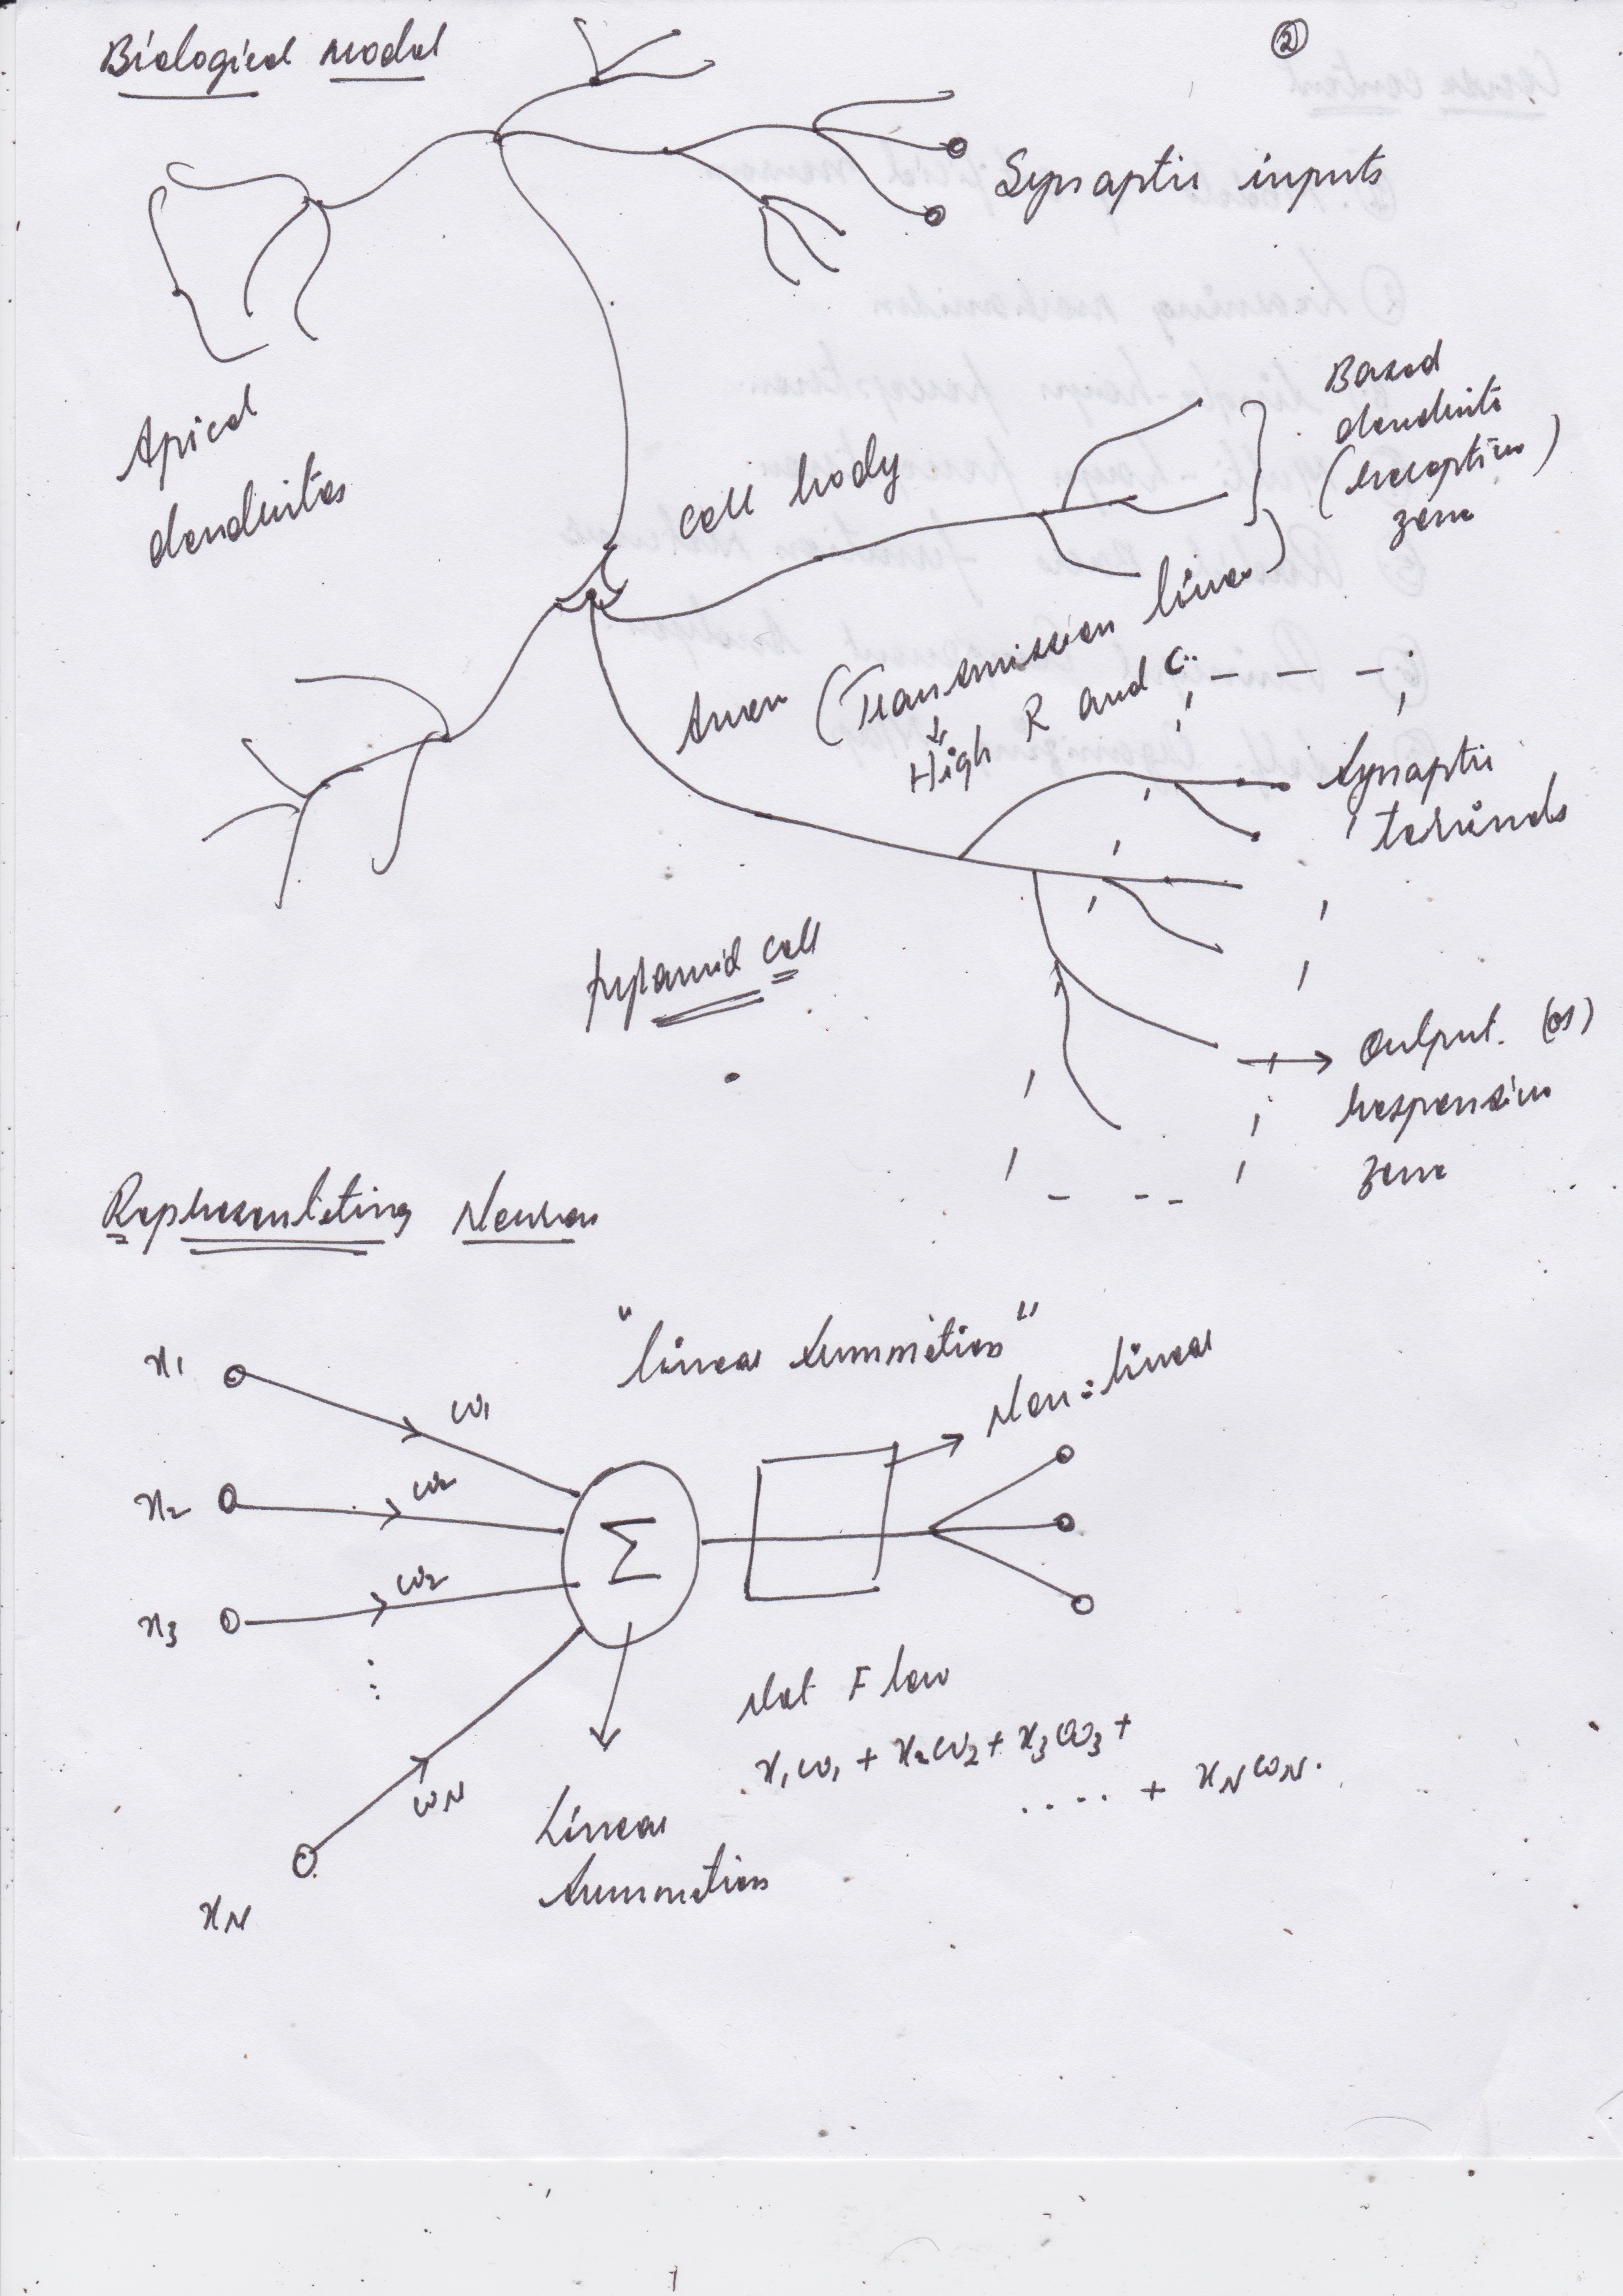 ②
Biological model
Synaptic inputs
Apical
dendrites
Cell body
Basad
dendrite
(Receptive)
zone
Axon (Transmission lines)
High R and C
Synaptic
terminals
pyramid cell
Output. (or)
Responsive
zone
Representing Neuron
"linear Summation"
Non-linear
x1
w1
x2
w2
x3
w2
Σ
wN
xN
Net Flow
x1w1 + x2w2 + x3w3 +
.... + xNwN.
Linear
Summation